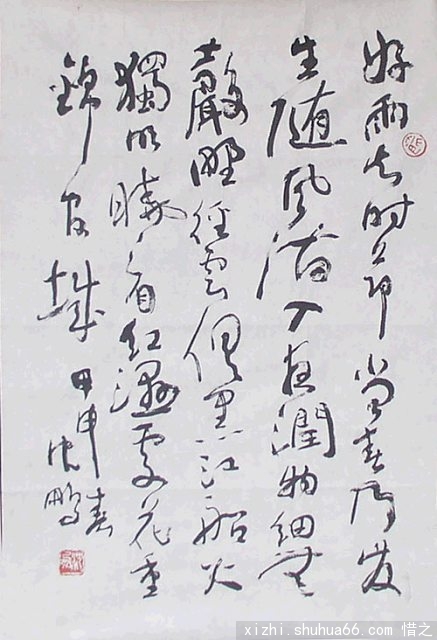 好雨知时节當春乃发
生随风潜入夜润物细無
聲野径云俱黑江船火
獨明曉看红湿處花重
錦官城
甲申春
沈鹏
xizhi.shuhua66.com 惜之